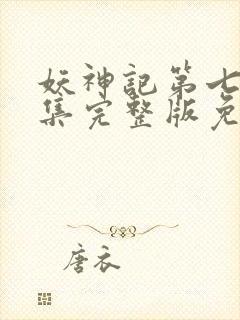 妖神記第七
集完整版免
唐衣